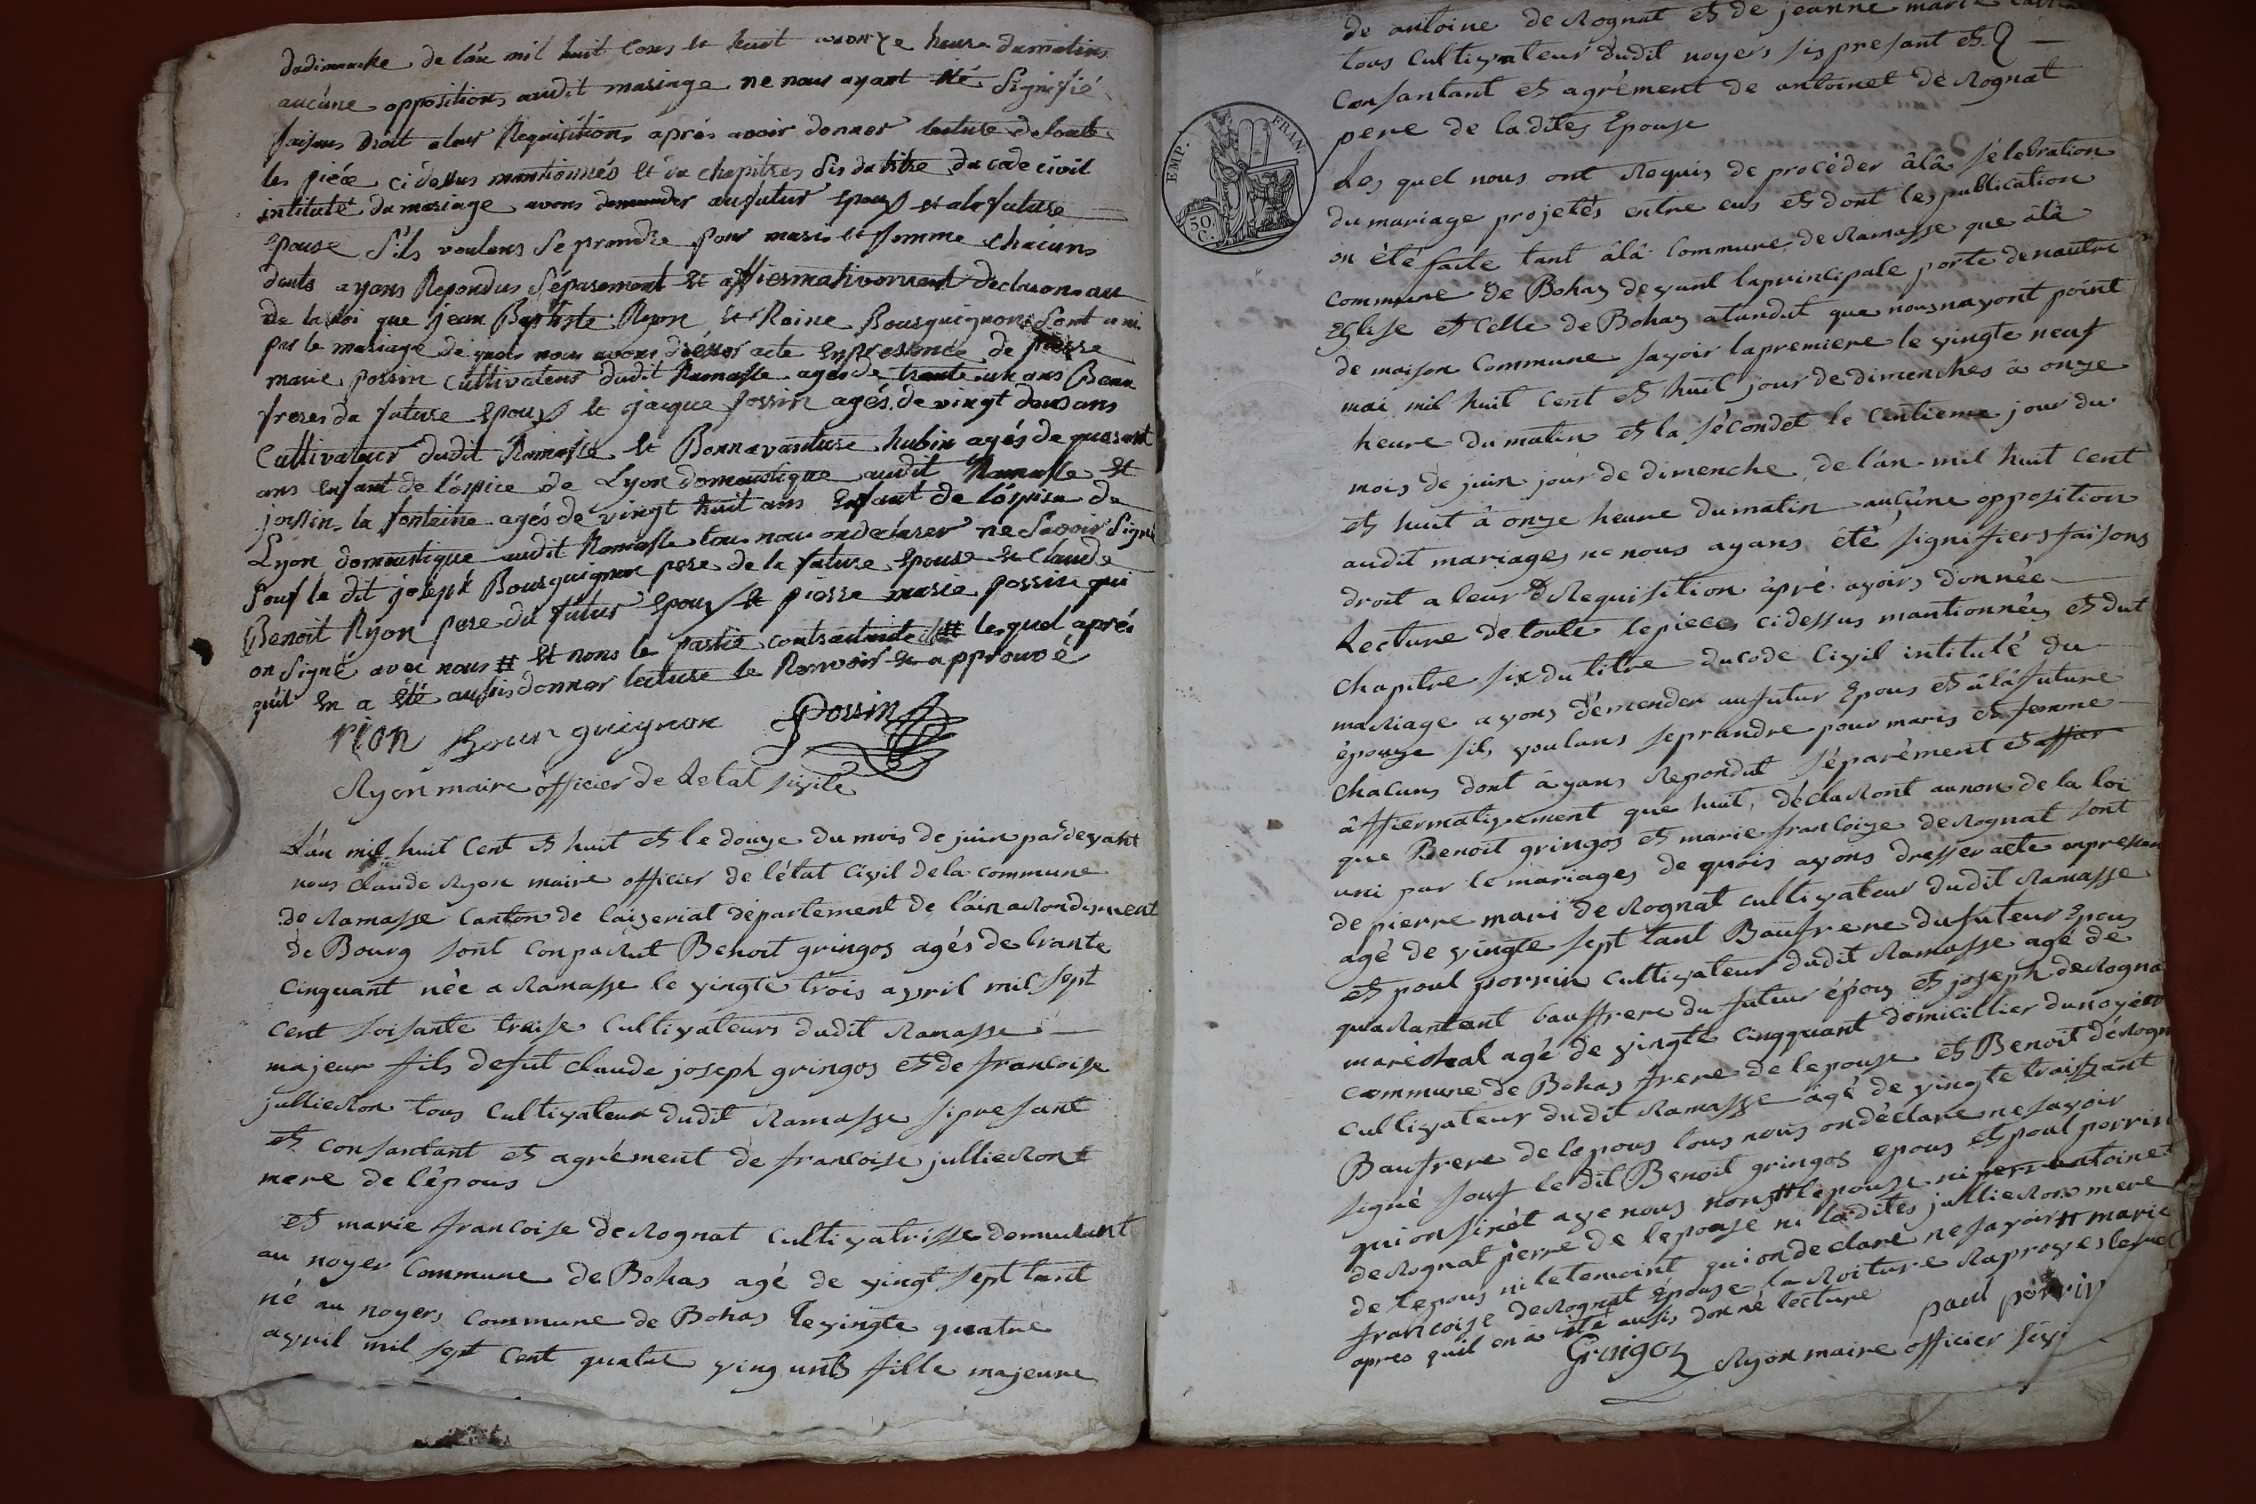 dudimanche de l'an mil huit Cens et huit a onze heure dumatins
aucune oppositions audit mariage ne nous ayant été Signifié
faisans Droit a leur Requisitions après avoir donner lecture detoute
les pièce ci dessus mantionnés et du chapitres Sis dutitre du code civil
intitulé du mariage avons demander aufutur Epoux et alafuture
Epouse S'ils voulans Se prandre pour maris et femme Chacuns
deuts ayans Repondus Séparement et affiermativement declarons au
de la Loi que jean Baptiste Ryon et Raine Bourguignon Sont uni
par le mariage de quoi nous avons dresser acte En presance de pierre
marie possin Cultivateur dudit Ramasse ages de trante un ans Beau
freres du future Epoux et jacque possin agés de vingt deus ans
Cultivateur dudit Ramasse et Bonnavanture hubin agés de quarant
ans Enfant de l'ospice de Lyon domaustique audit Ramasse et
jossin la fonteine agés de vingt huit ans Enfant de lospice de
Lyon domaustique audit Ramasse tous nous ondeclarer ne Savoir Signé
Souf le dit joseph Bourguignon pere de la future Epouse et Claude
Benoit Ryon pere du futur Epoux et pierre marie possin qui
on Signé avec nous # et nons le partie contractante # lesquel aprés
quil En a été aussis donner lecture le Revoir et approuvé
rion Bourguignon Possin
Ryon maire officier de Letat sivile
L'an mil huit Cent et huit et le douze du mois de juin par devant
nous Claude Ryon maire officier de l'état Civil de la commune
de Ramasse Canton de Caizeriat département de l'ain arondisment
de Bourg sont Conparut Benoit gringos agés de trante
Cinquant née a Ramasse le vingte trois avril mil sept
Cent soisante traise Cultivateurs dudit Ramasse
majeur fils defut Claude joseph gringos et de francoise
jullieron tous Cultivateur dudit Ramasse si presant
et Consantant et agrément de francoise jullieront
mere de l'épous
et marie francoise derognat Cultivatrisse demeurant
au noyer Commune de Bohas agé de vingt sept tant
né au noyers Commune de Bohas le vingte quatre
avril mil sept Cent quatre ving unt fille majeure
de antoine de Rognat et de jeanne marie
tous Cultivateur dudit noyers sis presant et
Consantant et agrément de antoinet de Rognat
pere de la dites Epouse
Les quel nous ont Requis de procéder âlâ sélébration
du mariage projetés entre eus et dont les publication
on été faite tant âlâ Commune de Ramasse que âlâ
Commune de Bohas devant la principale porte denautre
Eglise et Celle de Bohas atandut que nous nayont point
de maison Commune savoir la premiere le vingte neuf
mai mil huit Cent et huit jour de dimenches â onze
heure du matin et la sécondet le Centieme jour du
mois de juin jour de dimenche de l'an mil huit Cent
et huit â onze heure dumatin aucune opposition
audit mariages ne nous ayans été signifiers faisons
droit a leur Requisition âpré avoirs donnée
Lecture de toute lepieces cidessus mantionnées et dut
Chapitre six du titre du code Civil intitulé du
maRiage avons démender aufutur Epous et âlâ future
épouze sils voulans se prandre pour maris et femme
Chacuns dont âyans Repondut séparément et affier
âffiermativement que huit, déclaRont aunon de la loi
que Benoit gringos et marie francoize deRognat sont
uni par le mariages de quois avons dresser acte en presan
de pierre mari de Rognat Cultivateur dudit Ramasse
agé de vingte sept tant Baufrere du futeur Epous
et poul porrin Cultivateur dudit Ramasse agé de
quaRantant bauffrere du futeur épous et joseph deRogna
maréchal agé de vingte Cinqquant domicillier dunoyer
Commune de Bohas frere de lepouse et Benoit déRogn
Cultivateur dudit Ramasse âgé de vingte troissant
Baufrere de lepous tous nous ondéclare ne savoir
signé souf le dit Benoit gringos epous et poul porrin
qui on sinét ave nous nons # lepouse ni pere antoinet
deRognat perre de lepouse ni ladites jullieron mere
de lepous ni le temoint qui on declare ne savoir # marie
francoize deRognat épouse la Roiture Raprové lesquel
apres quil en â été aussis donné lecture
paul porrin
Gringoz Ryon maire officier sivi
EMP. FRAN.
50 C.